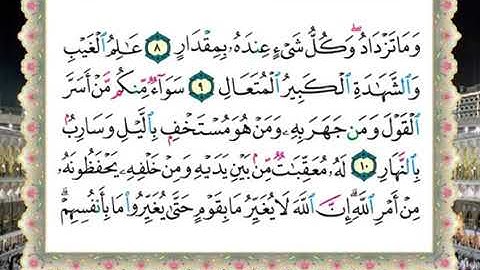 وَمَا تَزْدَادُ ۖ وَكُلُّ شَىْءٍ عِندَهُۥ بِمِقْدَارٍ ٨ عَٰلِمُ ٱلْغَيْبِ
وَٱلشَّهَٰدَةِ ٱلْكَبِيرُ ٱلْمُتَعَالِ ٩ سَوَآءٌ مِّنكُم مَّنْ أَسَرَّ
ٱلْقَوْلَ وَمَن جَهَرَ بِهِۦ وَمَنْ هُوَ مُسْتَخْفٍۭ بِٱلَّيْلِ وَسَارِبٌۢ
بِٱلنَّهَارِ ١٠ لَهُۥ مُعَقِّبَٰتٌ مِّنۢ بَيْنِ يَدَيْهِ وَمِنْ خَلْفِهِۦ يَحْفَظُونَهُۥ
مِنْ أَمْرِ ٱللَّهِ ۗ إِنَّ ٱللَّهَ لَا يُغَيِّرُ مَا بِقَوْمٍ حَتَّىٰ يُغَيِّرُوا۟ مَا بِأَنفُسِهِمْ ۗ